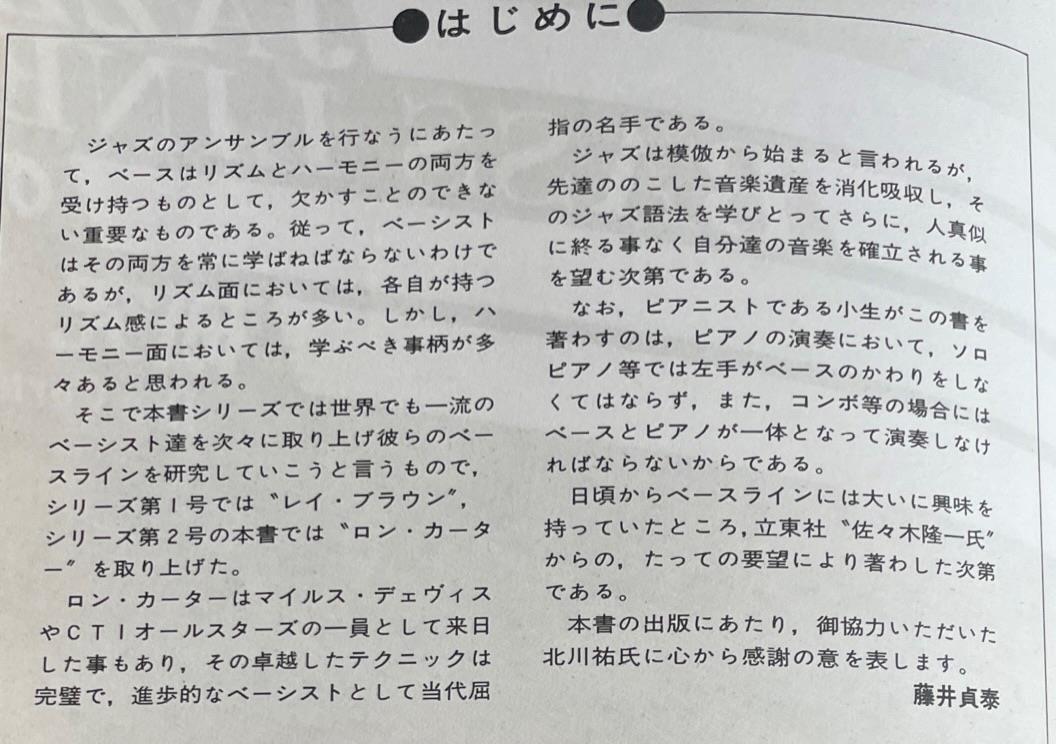 ●はじめに●
ジャズのアンサンブルを行なうにあたっ
て，ベースはリズムとハーモニーの両方を
受け持つものとして，欠かすことのできな
い重要なものである。従って，ベーシスト
はその両方を常に学ばねばならないわけで
あるが，リズム面においては，各自が持つ
リズム感によるところが多い。しかし，ハ
ーモニー面においては，学ぶべき事柄が多
々あると思われる。
そこで本書シリーズでは世界でも一流の
ベーシスト達を次々に取り上げ彼らのベー
スラインを研究していこうと言うもので，
シリーズ第1号では〝レイ・ブラウン〟，
シリーズ第2号の本書では〝ロン・カータ
ー〟を取り上げた。
ロン・カーターはマイルス・デェヴィス
やCTIオールスターズの一員として来日
した事もあり，その卓越したテクニックは
完璧で，進歩的なベーシストとして当代屈
指の名手である。
ジャズは模倣から始まると言われるが，
先達ののこした音楽遺産を消化吸収し，そ
のジャズ語法を学びとってさらに，人真似
に終る事なく自分達の音楽を確立される事
を望む次第である。
なお，ピアニストである小生がこの書を
著わすのは，ピアノの演奏において，ソロ
ピアノ等では左手がベースのかわりをしな
くてはならず，また，コンボ等の場合には
ベースとピアノが一体となって演奏しなけ
ればならないからである。
日頃からベースラインには大いに興味を
持っていたところ，立東社〝佐々木隆一氏〟
からの，たっての要望により著わした次第
である。
本書の出版にあたり，御協力いただいた
北川祐氏に心から感謝の意を表します。
藤井貞泰